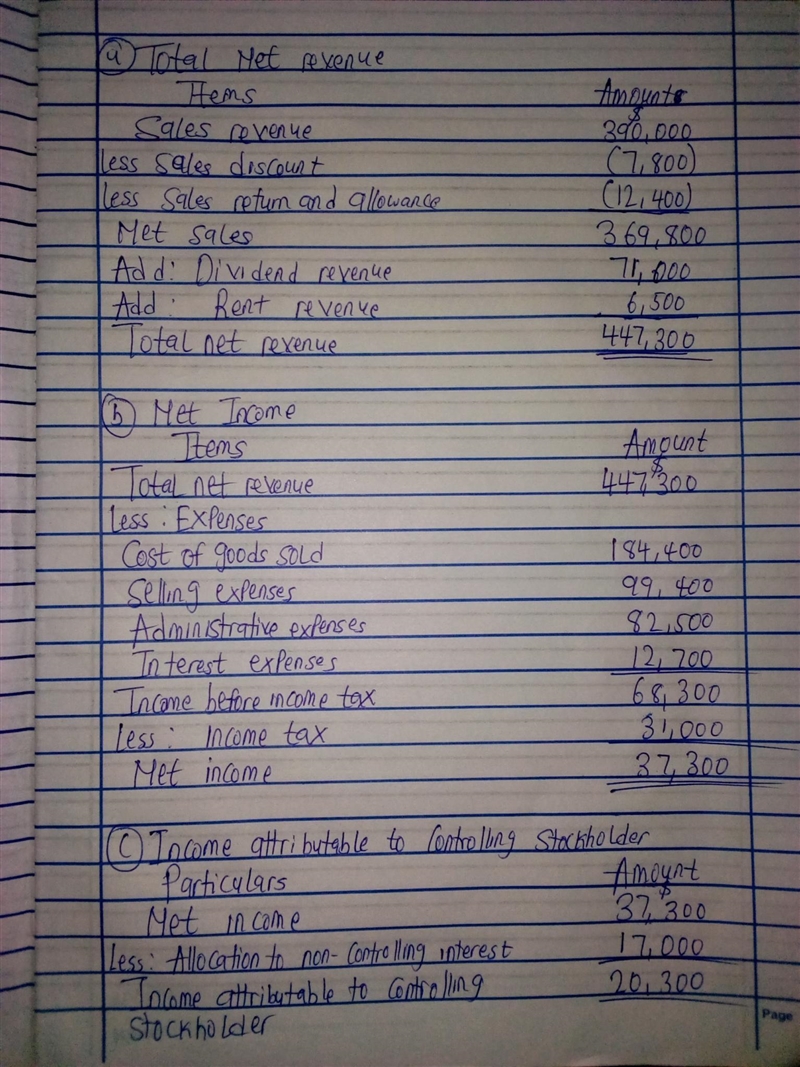 (a) Total Net revenue
Items Amounts
$
Sales revenue 390,000
less Sales discount (7,800)
less Sales return and allowance (12,400)
Net sales 369,800
Add: Dividend revenue 71,000
Add: Rent revenue 6,500
Total net revenue 447,300
(b) Net Income
Items Amount
$
Total net revenue 447,300
less: Expenses
Cost of goods sold 184,400
Selling expenses 99,400
Administrative expenses 82,500
Interest expenses 12,700
Income before income tax 68,300
Less: Income tax 31,000
Net income 37,300
(C) Income attributable to controlling Stockholder
Particulars Amount
$
Net income 37,300
Less: Allocation to non-controlling interest 17,000
Income attributable to controlling 20,300
Stockholder
Page